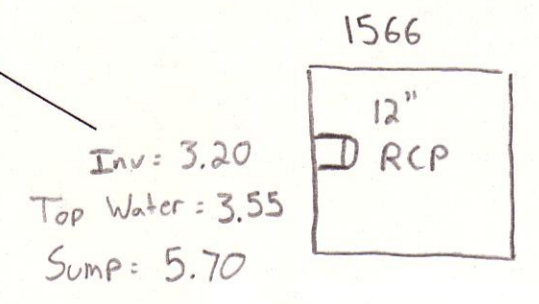 1566
12"
RCP
Inv: 3.20
Top Water: 3.55
Sump: 5.70